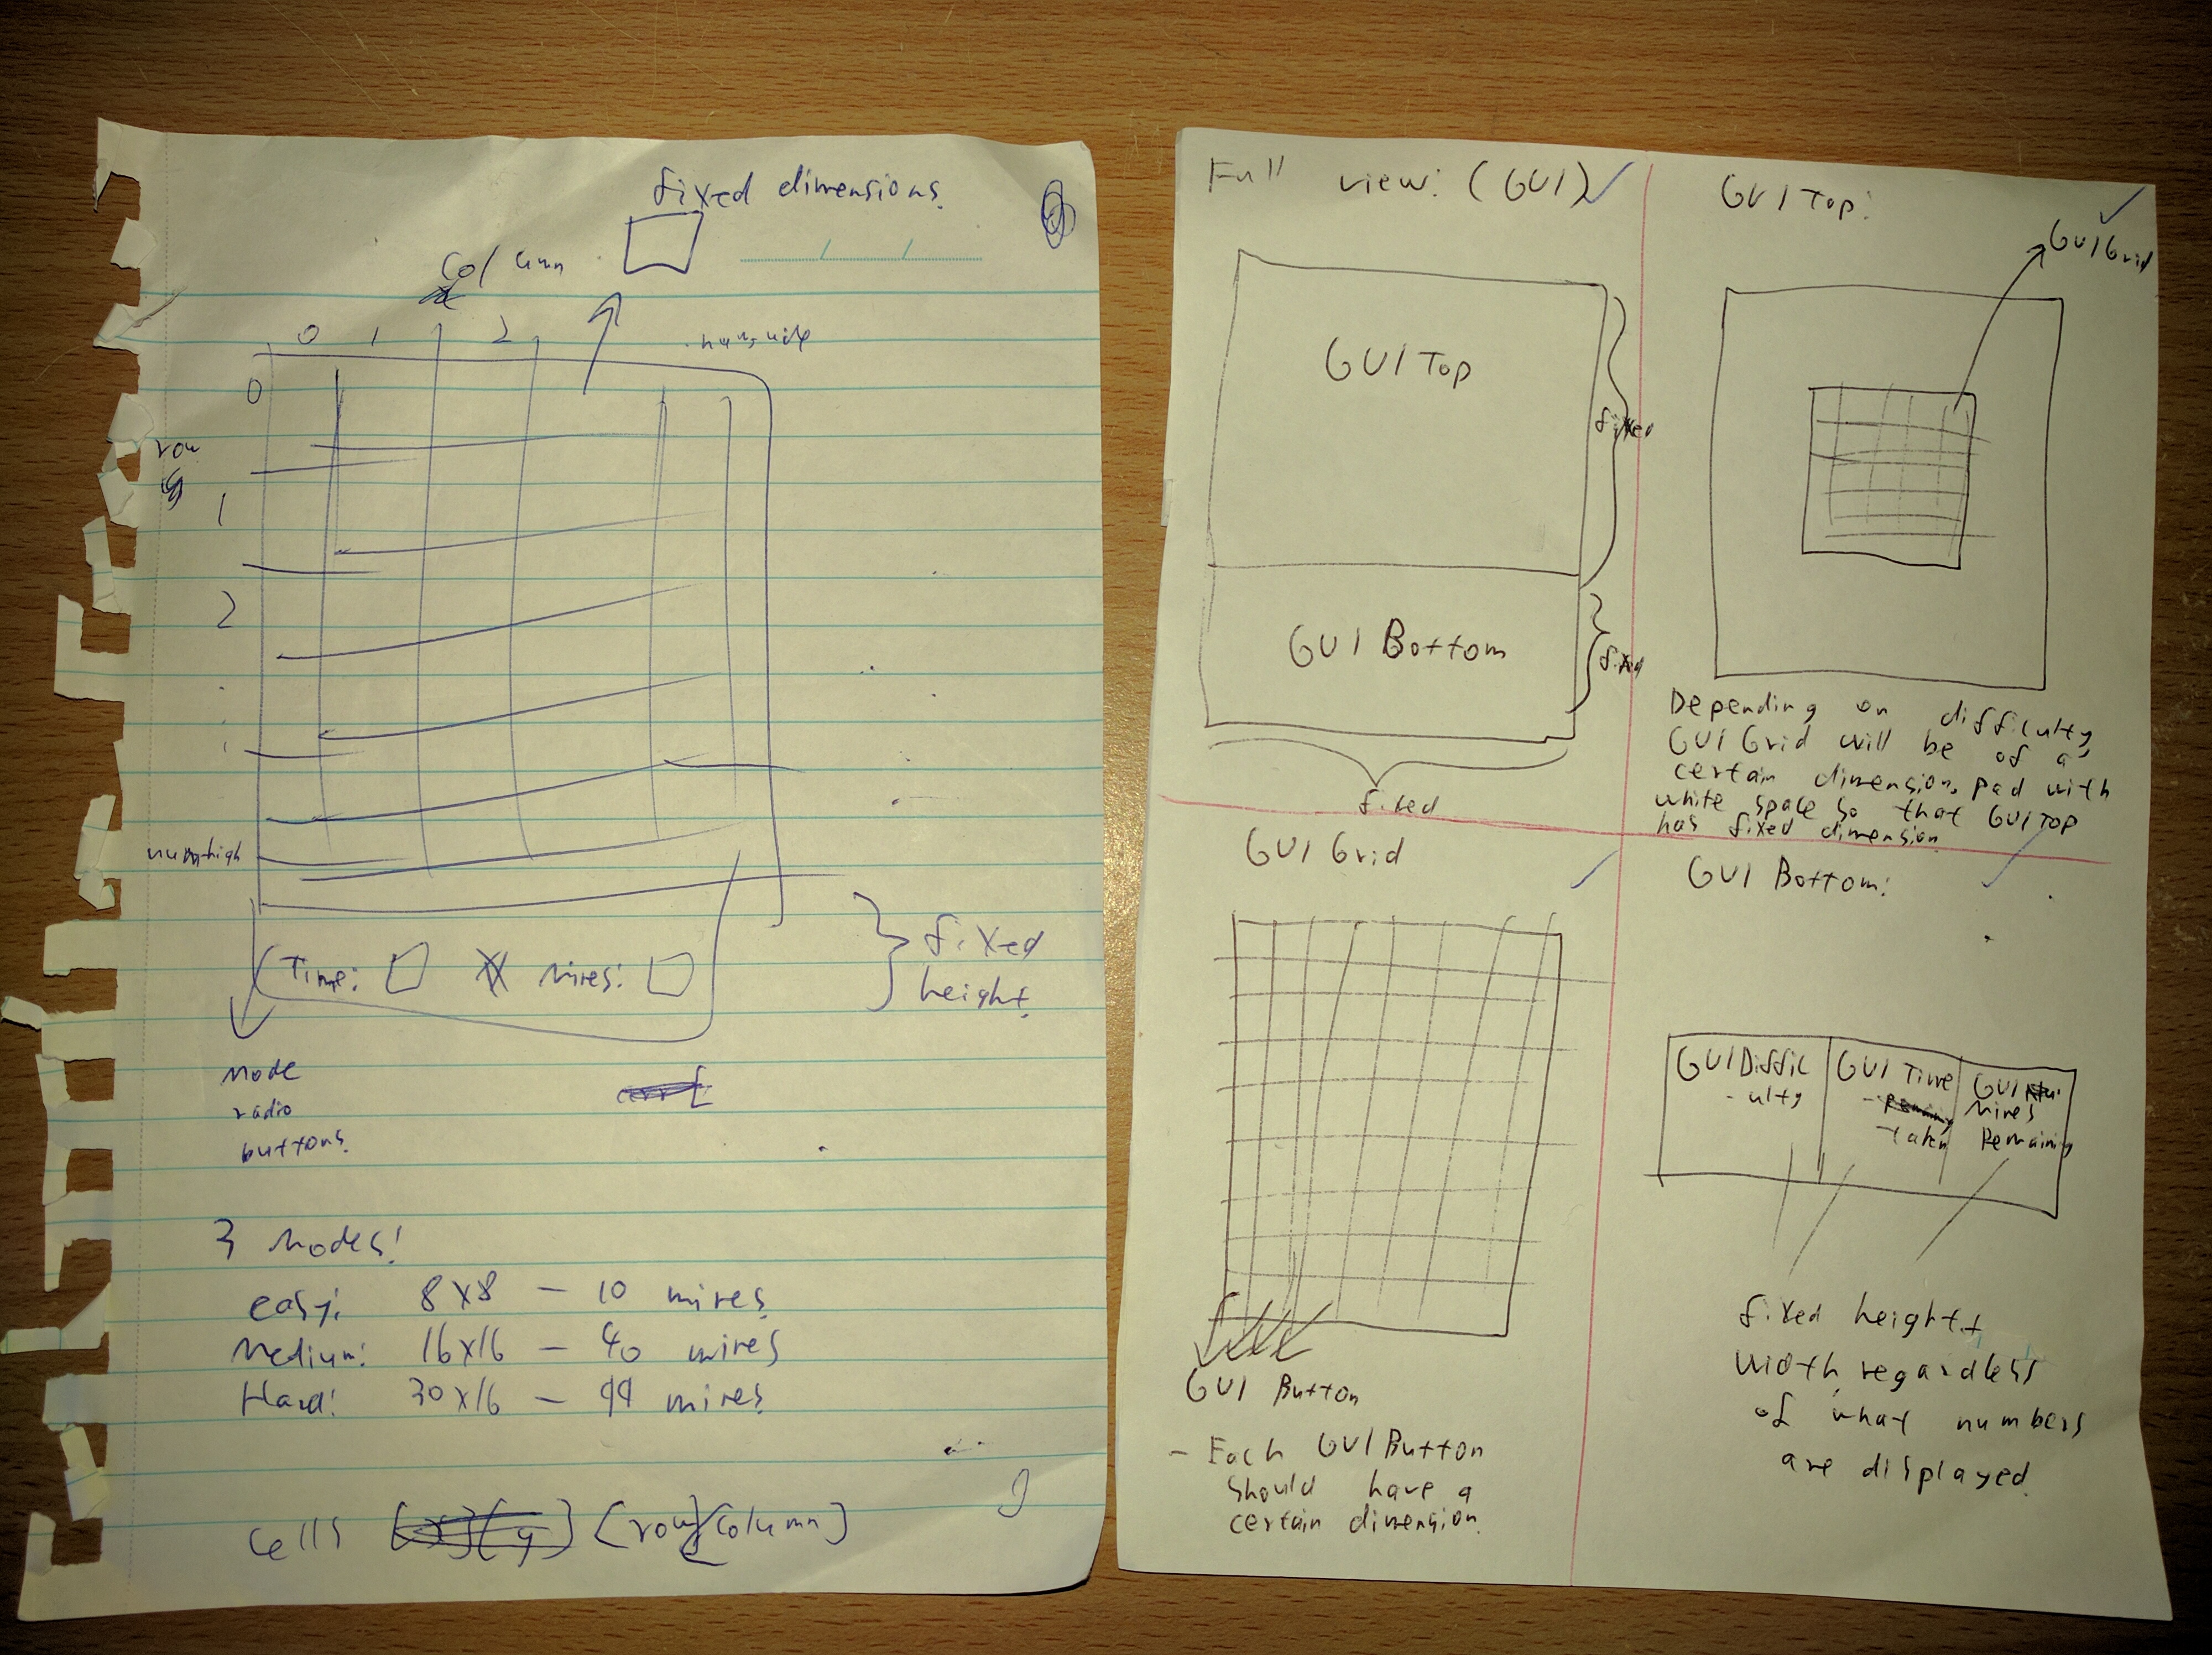 fixed dimensions.
Column
0 1 2
0
row
1
2
numhigh
Time: Mines:
fixed
height.
Mode
radio
buttons.
3 Modes!
easy: 8x8 - 10 mines
Medium: 16x16 - 40 mines
Hard: 30x16 - 99 mines
cells [x][y] [row][column]
Full view: (GUI)
GUI Top
fixed
GUI Bottom
fixed
fixed
GUI Top:
GUI Grid
Depending on difficulty,
GUI Grid will be of a
certain dimension, pad with
white space so that GUI Top
has fixed dimension
GUI Grid
GUI Button
- Each GUI Button
should have a
certain dimension.
GUI Bottom:
GUI Diffic
- ulty
GUI Time
- taken
GUI
Mines
Remaining
fixed height +
width, regardless
of what numbers
are displayed.